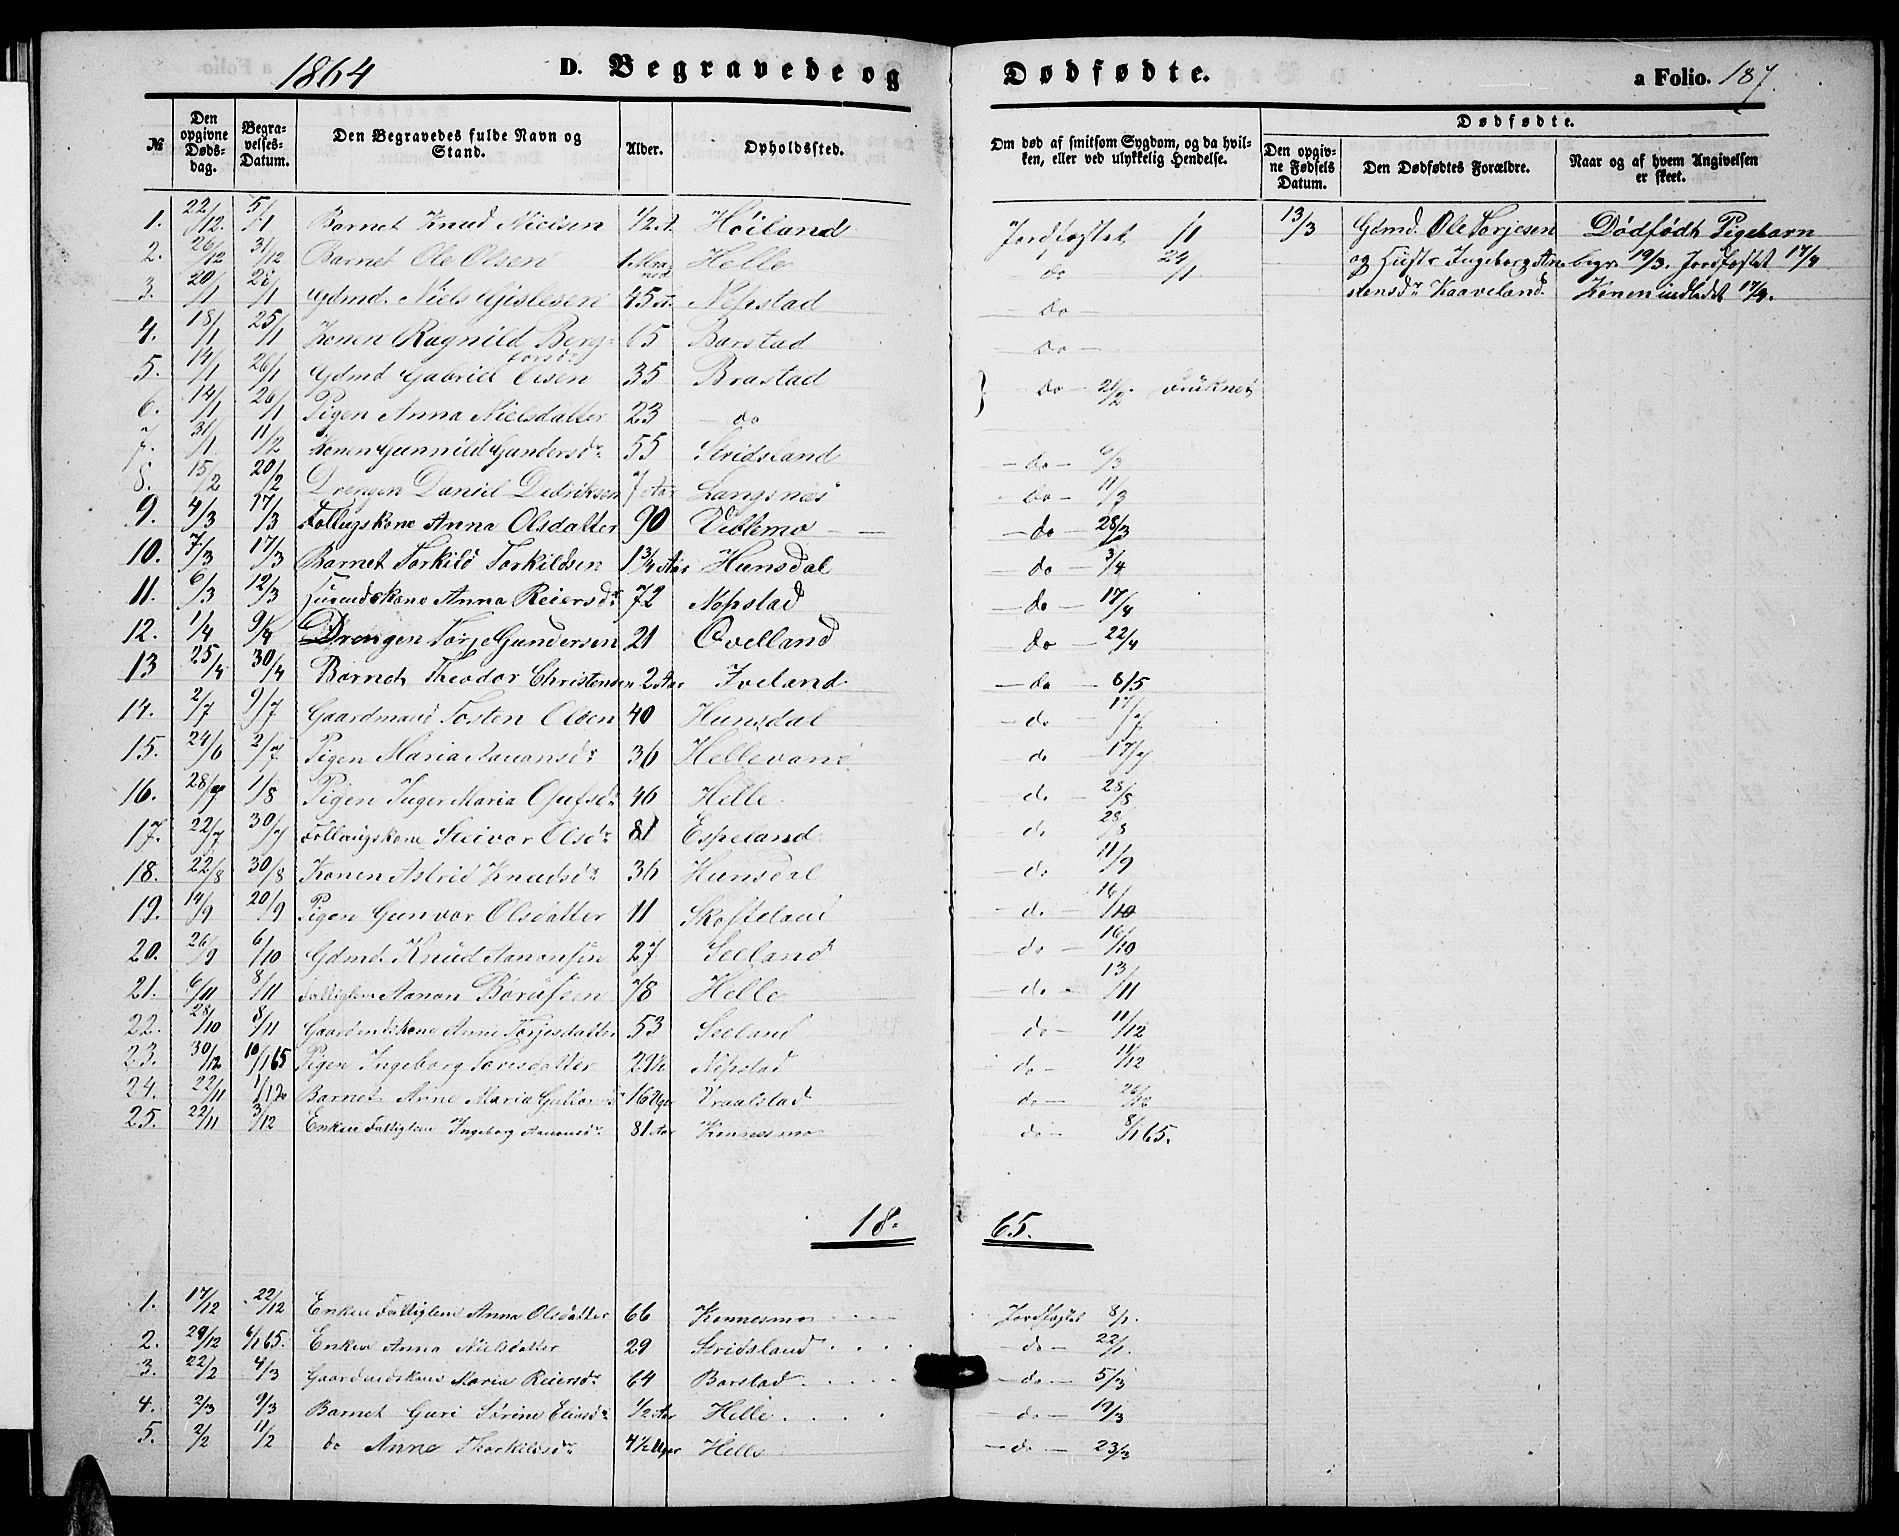 1864 D. Begravede og Dødfødte. a Folio. 187.
№ Den opgivne Dødsdag. Begravelses-Datum. Den Begravedes fulde Navn og Stand. Alder. Opholdssted. Om død af smitsom Sygdom, og da hvilken, eller ved ulykkelig Hendelse. Dødfødte.
Den opgivne Fødsels Datum. Den Dødfødtes Forældre. Naar og af hvem Angivelsen er skeet.
1. 22/12. 5/1 Barnet Knud Nielsen 1/2 A. Höiland Jordfæstet 1/1 13/3 Gdmd. Ole Torjesen Dödfödt Pigebarn
2. 26/12 31/12 Barnet Ole Olsen Helle do 24/1 og Hustr Ingeborg begr. 19/3. Jordfæstet 17/4
3. 20/1 28/1 Gdmd. Niels Gislesen 45 Nepstad do Kaaveland. Konen indledet 17/4.
4. 18/1 25/1 Konen Ragnild Bergtorsdr 65 Barstad do
5. 14/1 26/1 Gdmd Gabriel Olsen 35 Brastad do 21/2. druknet
6. 14/1 26/1 Pigen Anna Nielsdatter 23 do
7. 31/1 11/2 Konen Gunnild Gundersdr 55 Stridsland do 6/3
8. 15/2 20/2 Drengen Daniel Dedriksen 7 Aar Langenes do 11/3
9. 4/3 17/3 Follugskone Anna Olsdatter 90 Vittemo do 28/3
10. 7/3 17/3 Barnet Torkild Torkildsen 1 3/4 Aar Hunsdal do 3/4
11. 6/3 12/3 Anna Reiersdr 72 Nepstad do 17/4
12. 1/4 9/4 Drengen Torje Gundersen 21 Ovelland do 22/4
13 25/4 30/4 Barnet Theodor Christensen 2 Aar Iveland do 6/5
14. 2/7 9/7 Gaardmand Tosten Olsen 40 Hunsdal do 17/7
15. 24/6 2/7 Pigen Maria Aanonsdr 36 Hellevand do 17/7
16. 28/7 1/8 Pigen Inger Maria 46 Helle do 28/8
17. 22/7 30/7 Follaugskone Steivor Olsdr 81 Espeland do 28/8
18. 22/8 30/8 Konen Astrid Knudsdr 36 Hunsdal do 11/9
19. 14/9 20/9 Pigen Gunvor Olsdatter 11 Skofteland do 16/10
20. 26/9 6/10 Gdmd. Knud Aanonsen 27 Seeland do 16/10
21. 6/11 8/11 Fattiglem Aanon Börufsen 78 Helle do 13/11
22. 28/10 8/11 Gaardmdskone Anne Torjesdatter 53 Seeland do 11/12
23. 30/12 10/1 65 Pigen Ingeborg Torisdatter Nepstad do 11/12
24. 22/11 1/12 Barnet Anne Maria 16 Uger Vraalstad do
25. 22/11 3/12 Enken Fattiglem Ingeborg Aanonsdr 81 Aar Konnesmo do 8/1 65.
18 65.
1. 17/12 22/12 Enken Fattiglem Anna Olsdatter 66 Konnesmo Jordfæstet 8/1.
2. 29/12 6/1 65. Enken Anna Nielsdatter 29 Stridsland do 22/1.
3. 22/2 4/3 Gaardmdskone Maria Reiersdr 64 Barstad do 5/3
4. 2/3 9/3 Barnet Guri Sörine Eliasdr 1/2 Aar Helle do 19/3
5. 2/2 11/2 do Anne Thorkildsdr 4 1/2 Uger Helle do 23/3